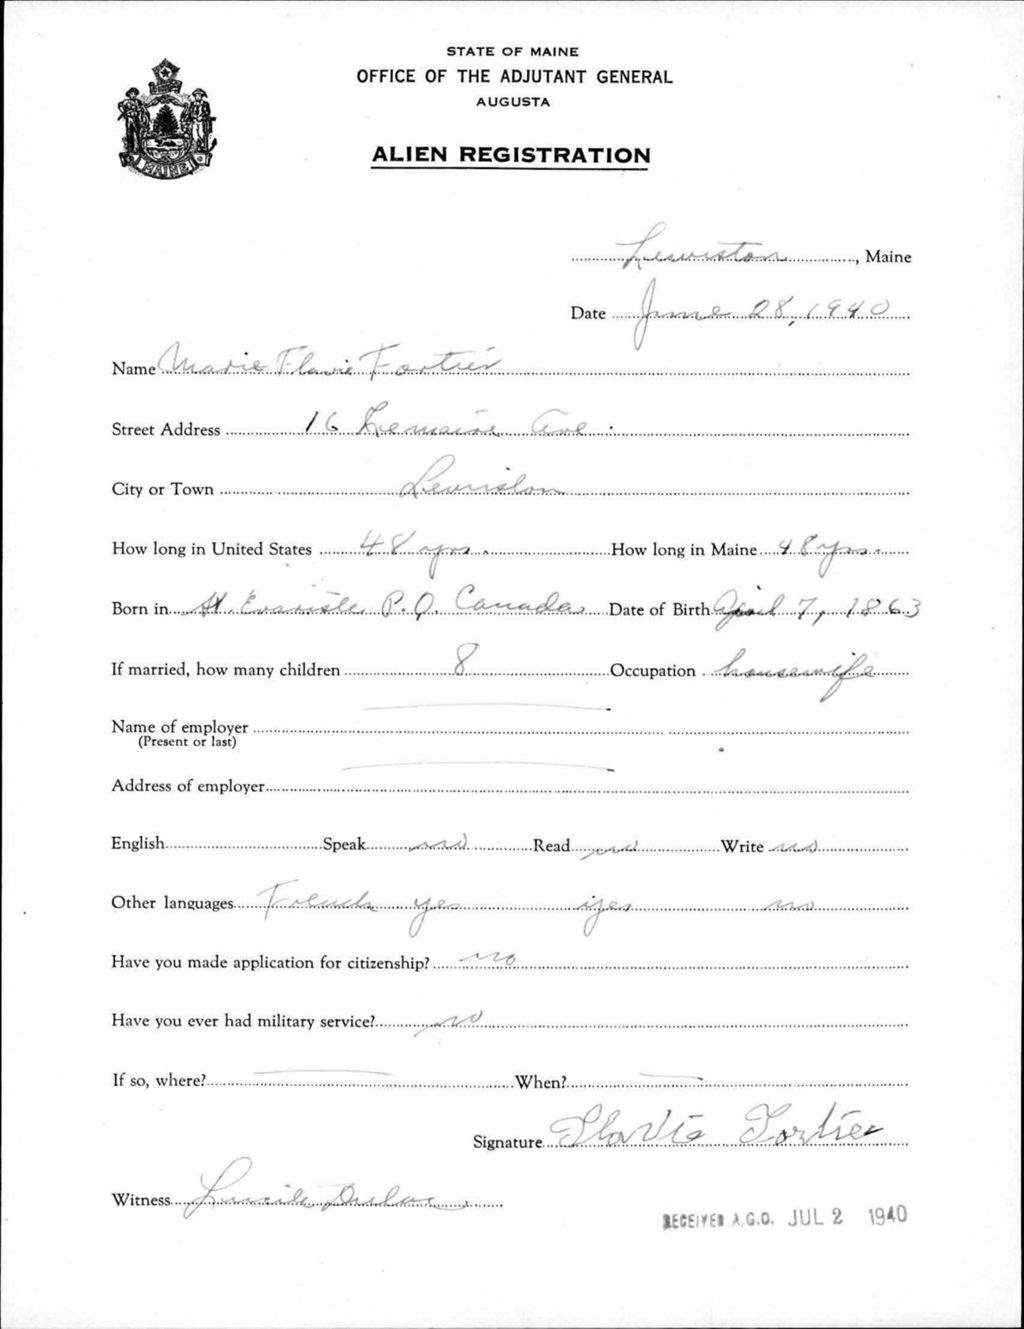 STATE OF MAINE
OFFICE OF THE ADJUTANT GENERAL
AUGUSTA
ALIEN REGISTRATION
MAINE
Lewiston, Maine
Date June 28, 1940
Name Marie Flavie Fortier
Street Address 16 Lemaire Ave.
City or Town Lewiston
How long in United States 48 yrs. How long in Maine 48 yrs.
Born in St. Evariste P.Q. Canada Date of Birth April 7, 1863
If married, how many children 8 Occupation housewife
Name of employer
(Present or last)
Address of employer
English Speak no Read no Write no
Other languages French yes yes no
Have you made application for citizenship? no
Have you ever had military service? no
If so, where? When?
Signature Flavie Fortier
Witness Lucile Dulac
RECEIVED A.G.O. JUL 2 1940